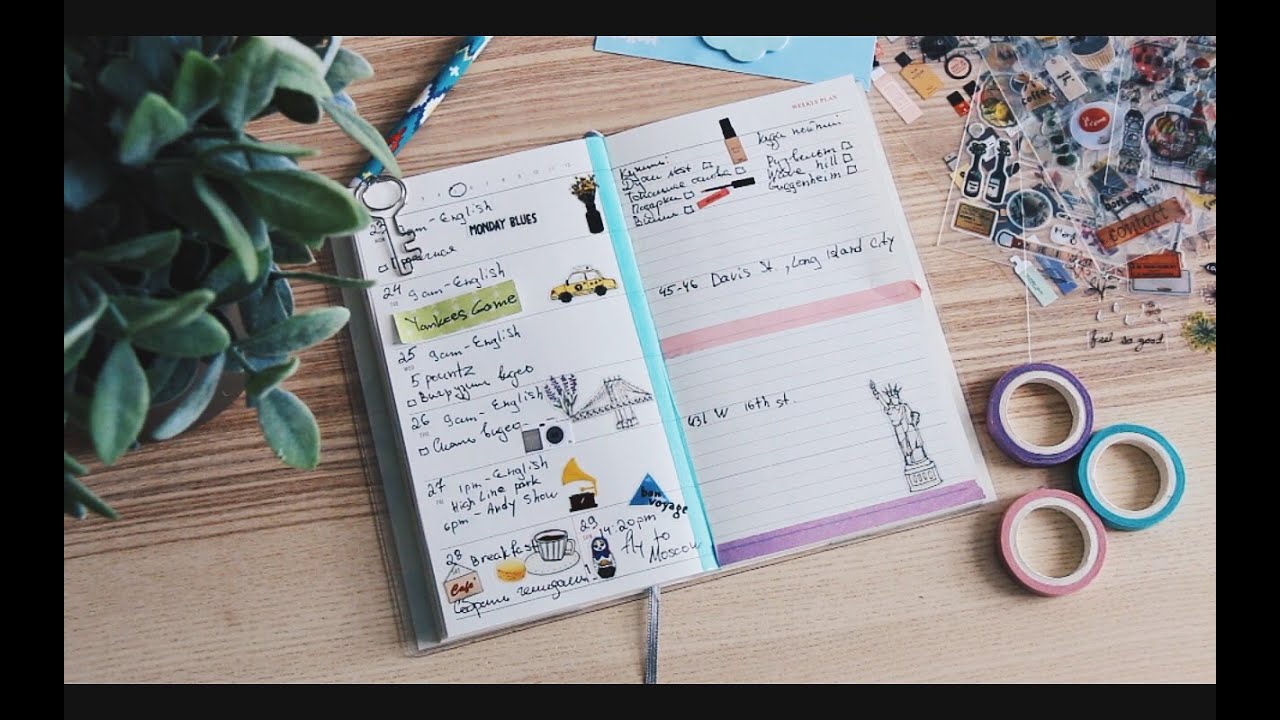 23 9am - English
MONDAY BLUES
24
9am - English
Yankees Game
25 9am - English
5 pointz
Выгрузить видео
26 9am - English
Снять видео
27 1pm - English
High Line park
6pm - Andy Show
bon
voyage
28 Breakfast
Café
Собрать чемодан!
29
14:20pm
fly to
Moscow
WEEKLY PLAN
Купить:
Драш
Тональная основа
Подарки
Куда пойти:
Рузвельт
Wave hill
Guggenheim
45-46 Davis St., Long Island City
431 W 16th st.
contact
feel so good